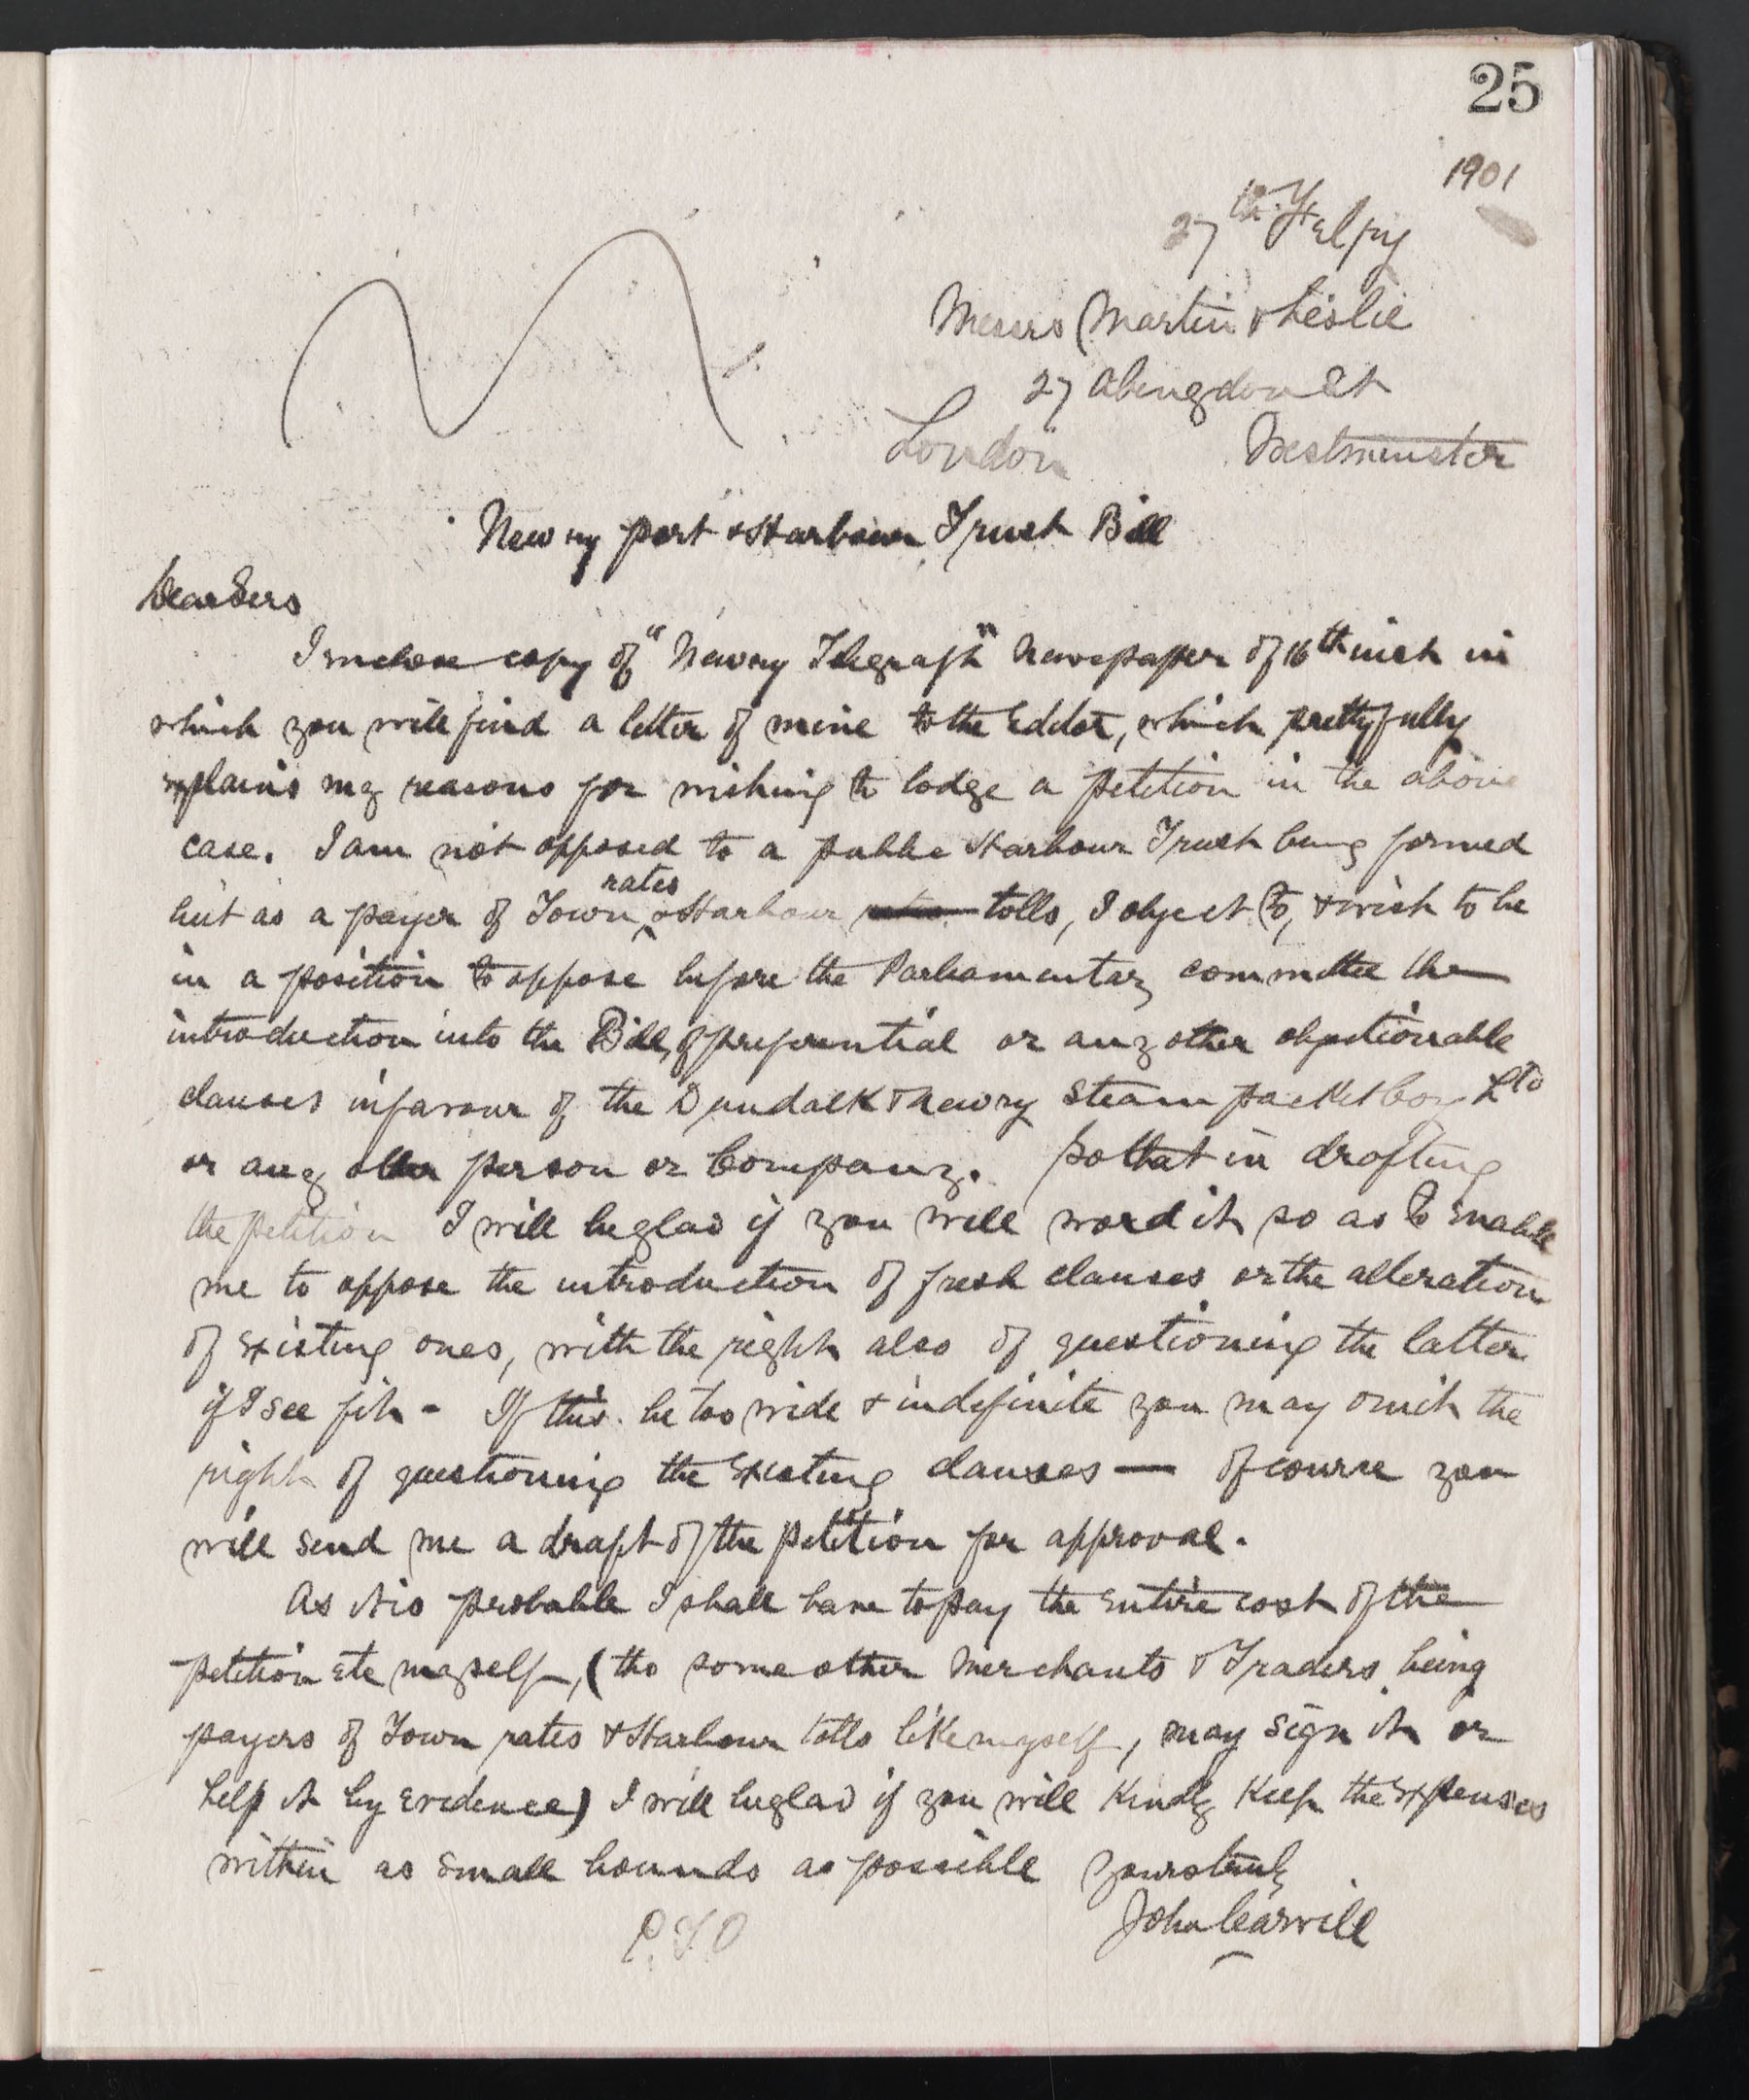 25
1901
27th Febry
Messrs Martin & Leslie
27 Abingdon St
London Westminster
Newry Port & Harbour Trust Bill
Dear Sirs
I enclose copy of "Newry Telegraph" Newspaper of 16th inst in
which you will find a letter of mine to the Editor, which pretty fully
explains my reasons for wishing to lodge a petition in the above
case. I am not opposed to a public Harbour Trust being formed
but as a payer of Town rates & Harbour tolls, I object to, & wish to be
in a position to oppose before the Parliamentary committee the
introduction into the Bill, of preferential or any other objectionable
clauses in favour of the Dundalk & Newry Steam Packet Coy Ltd
or any other person or Company. So that in drafting
the petition I will be glad if you will word it so as to enable
me to oppose the introduction of fresh clauses or the alteration
of existing ones, with the right also of questioning the latter
if I see fit - If this be too wide & indefinite you may omit the
right of questioning the existing clauses — of course you
will send me a draft of the petition for approval.
As it is probable I shall have to pay the entire cost of the
petition etc myself, (tho some other Merchants & Traders being
payers of Town rates & Harbour tolls like myself, may sign it or
help it by evidence) I will be glad if you will kindly keep the expenses
within as small bounds as possible Yours truly
John Carvill
P.T.O